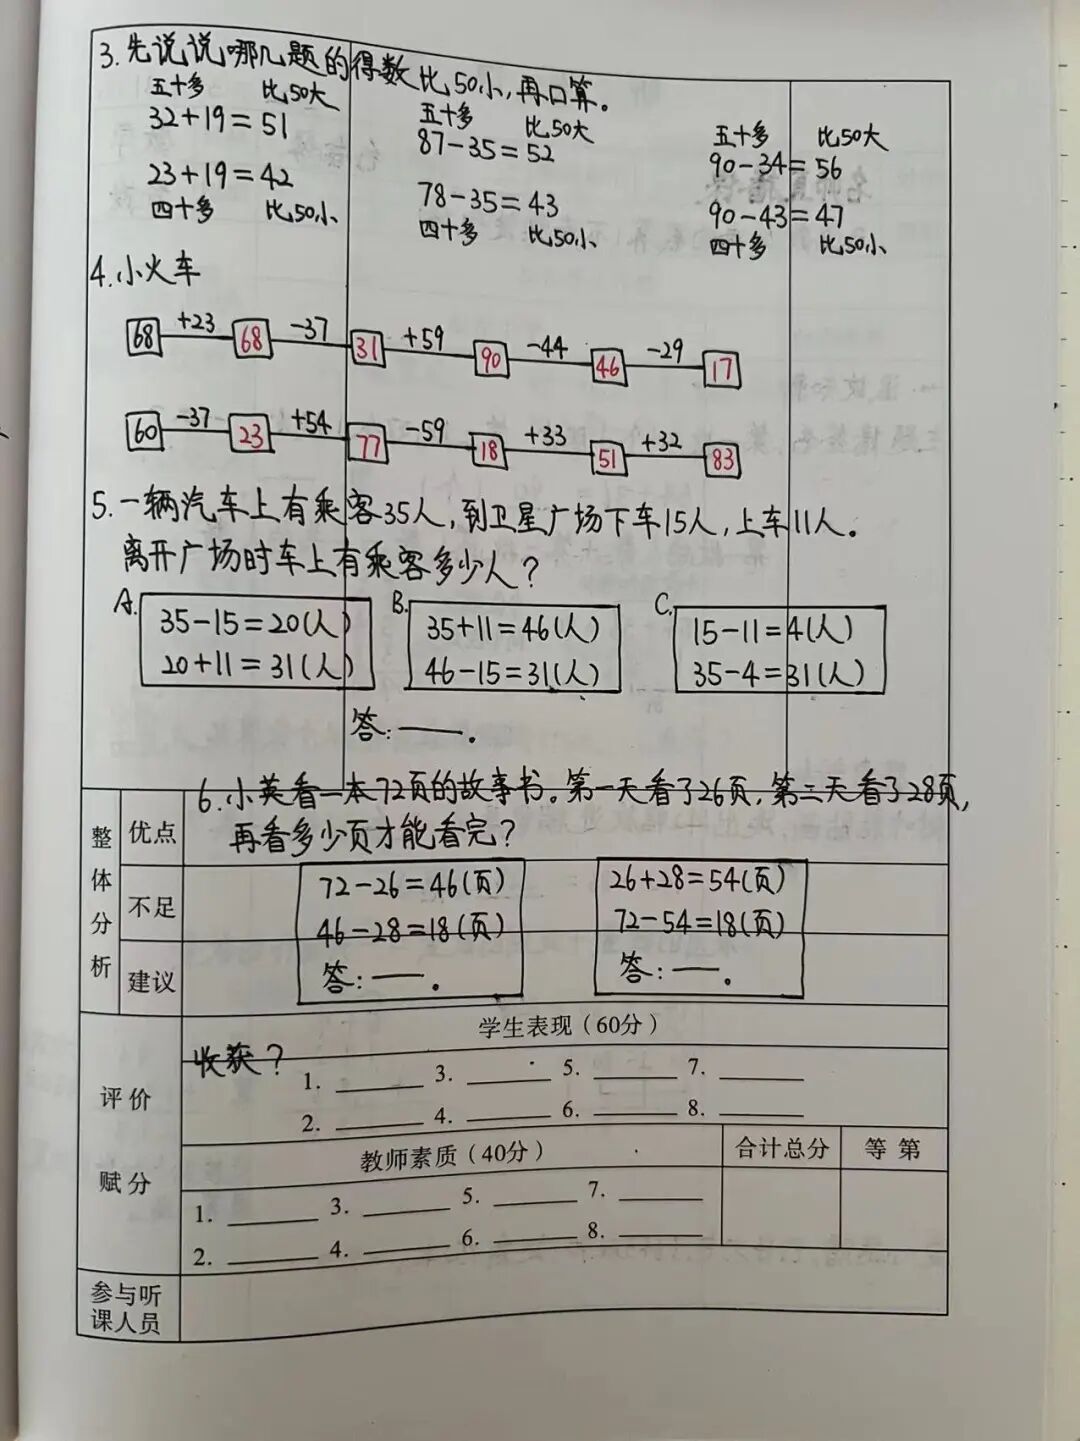 3.先说说哪几题的得数比50小,再口算。
五十多 比50大 五十多 比50大 五十多 比50大
32+19=51 87-35=52 90-34=56
23+19=42 78-35=43 90-43=47
四十多 比50小 四十多 比50小 四十多 比50小
4.小火车
68 +23 68 -37 31 +59 90 -44 46 -29 17
60 -37 23 +54 77 -59 18 +33 51 +32 83
5.一辆汽车上有乘客35人,到卫星广场下车15人,上车11人。
离开广场时车上有乘客多少人?
A. 35-15=20(人) B. 35+11=46(人) C. 15-11=4(人)
20+11=31(人) 46-15=31(人) 35-4=31(人)
答:——。
6.小英看一本72页的故事书。第一天看了26页,第二天看了28页,
再看多少页才能看完?
72-26=46(页) 26+28=54(页)
46-28=18(页) 72-54=18(页)
答:——。 答:——。
整体分析
优点
不足
建议
评价赋分
学生表现(60分)
收获?
1. ______ 3. ______ 5. ______ 7. ______
2. ______ 4. ______ 6. ______ 8. ______
教师素质(40分) 合计总分 等 第
1. ______ 3. ______ 5. ______ 7. ______
2. ______ 4. ______ 6. ______ 8. ______
参与听
课人员